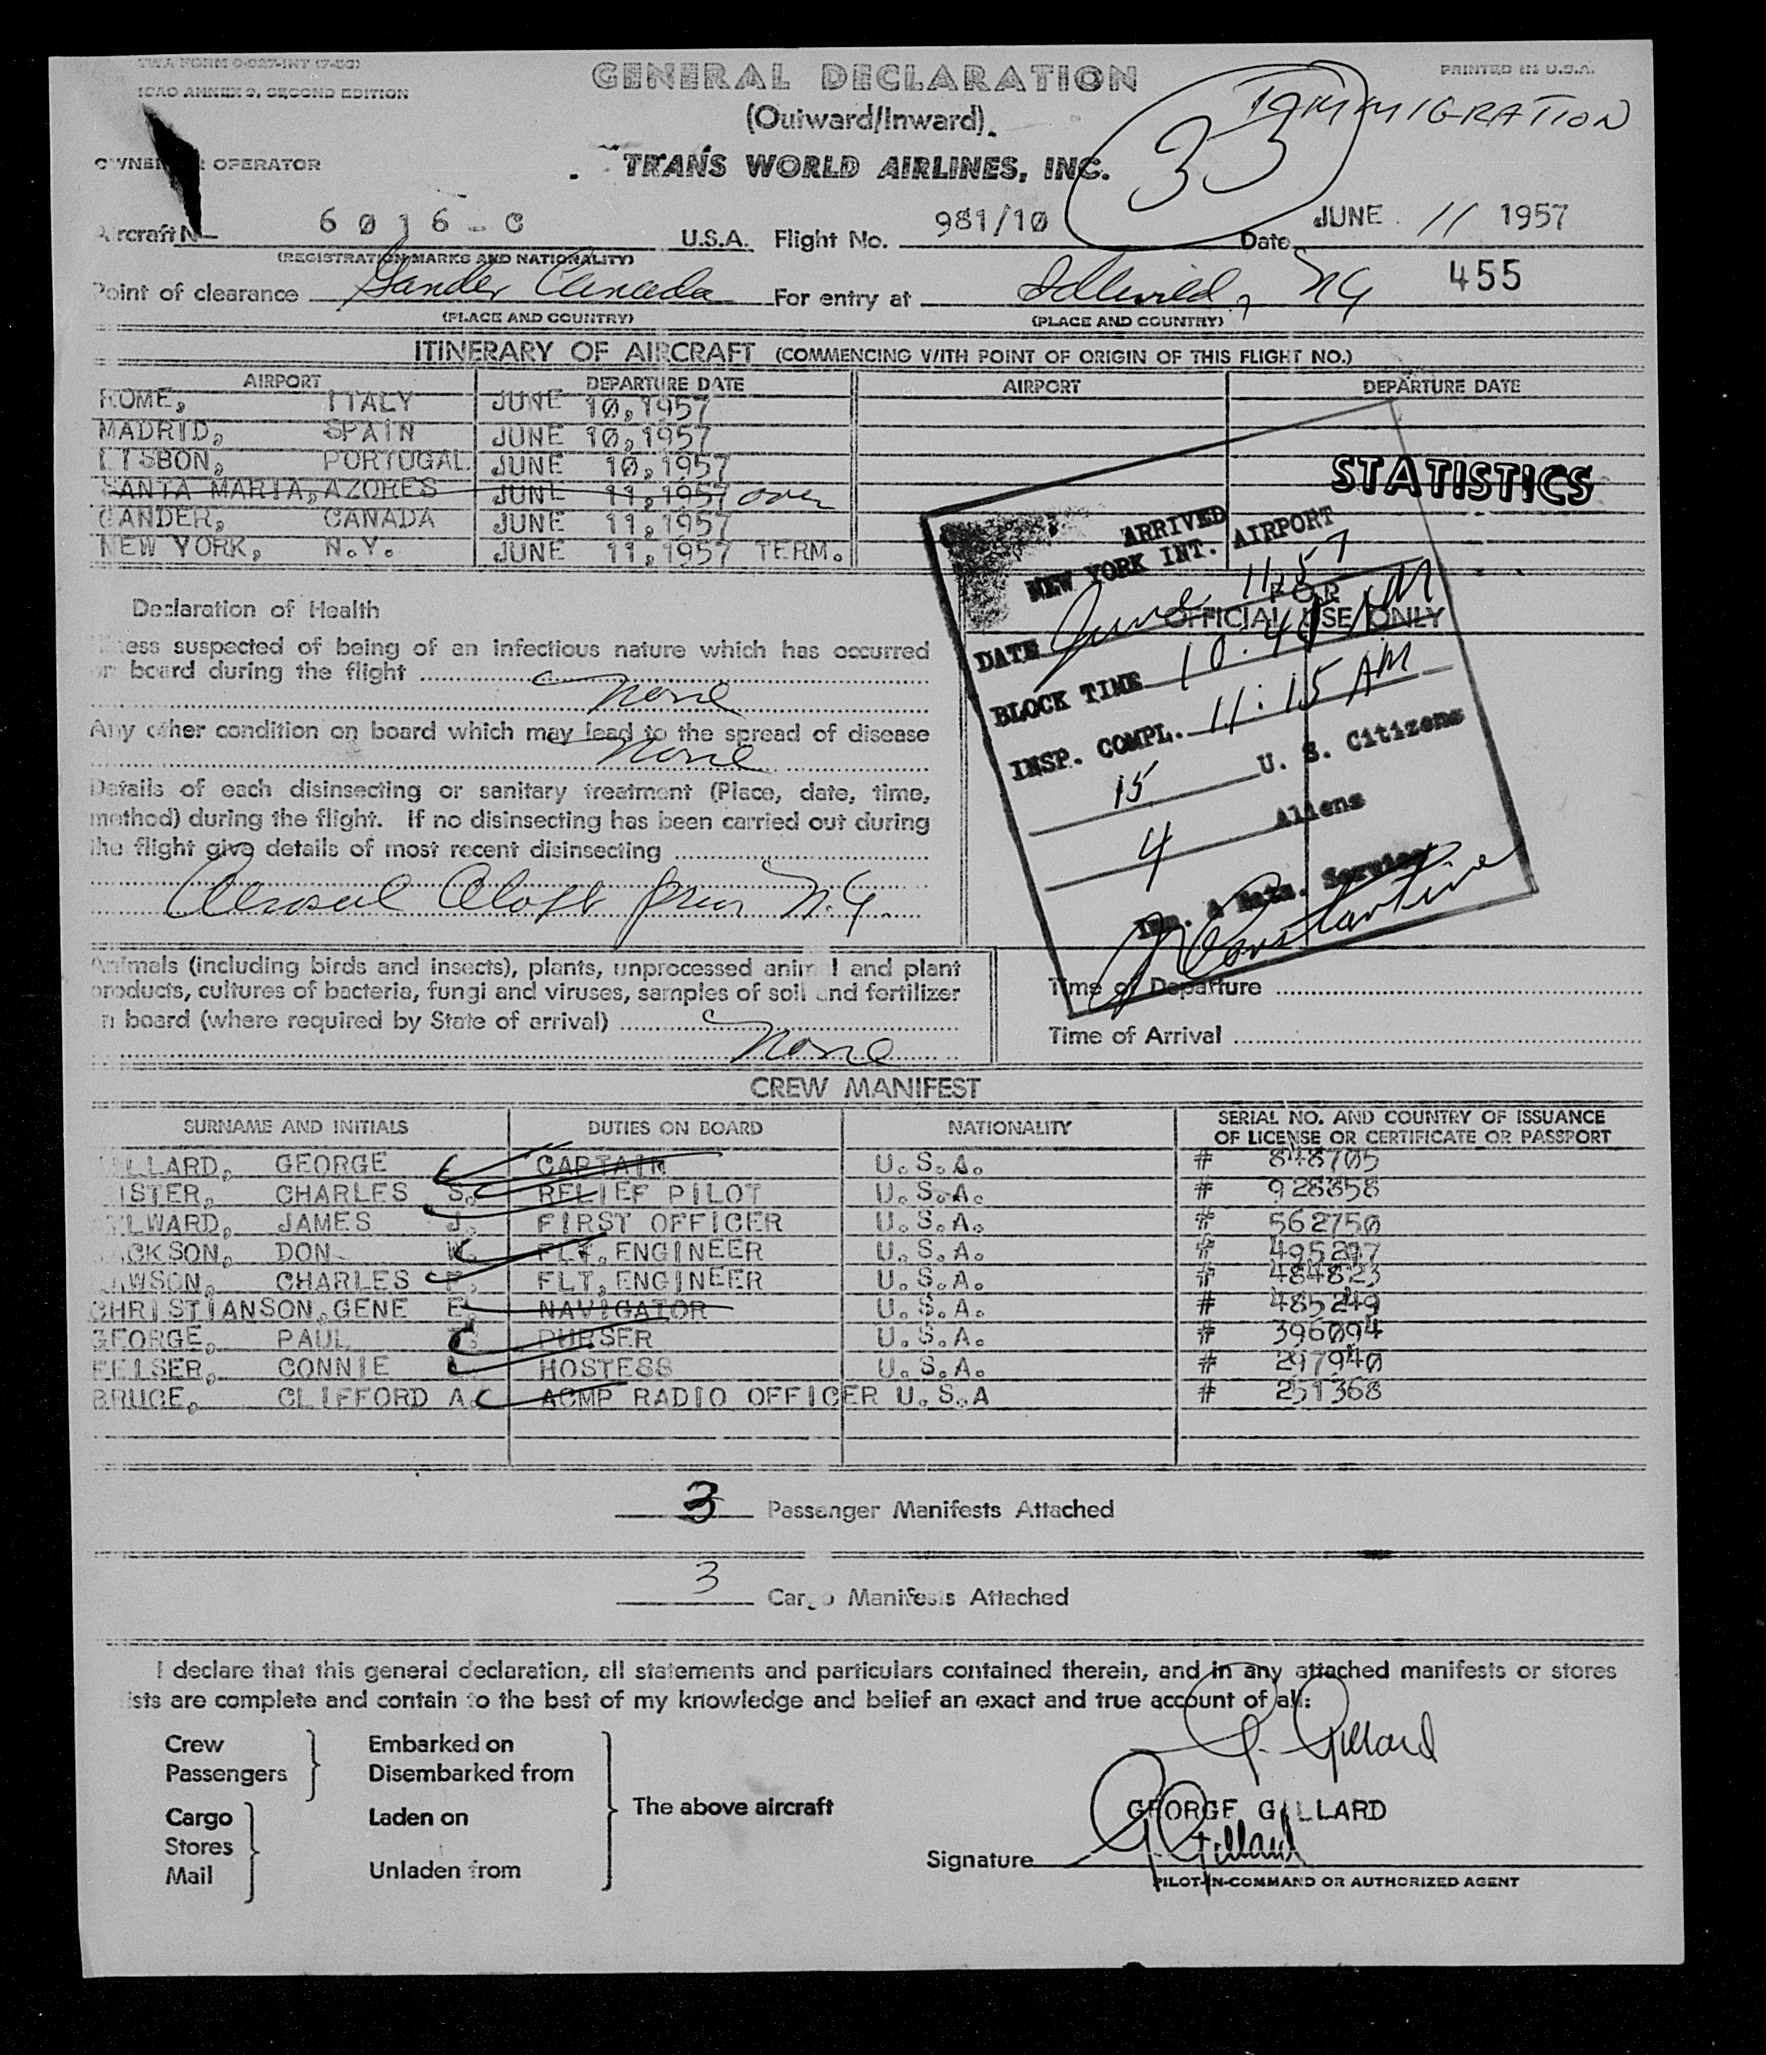 TWA FORM O-027-INT (7-53)
ICAO ANNEX 9, SECOND EDITION
GENERAL DECLARATION
PRINTED IN U.S.A.
(Outward/Inward)
IMMIGRATION
33
OPERATOR
TRANS WORLD AIRLINES, INC.
Aircraft 6016-C U.S.A. Flight No. 981/10 Date JUNE 11 1957
(REGISTRATION MARKS AND NATIONALITY)
Point of clearance Gander Canada For entry at Idlewild, NY 455
(PLACE AND COUNTRY) (PLACE AND COUNTRY)
ITINERARY OF AIRCRAFT (COMMENCING WITH POINT OF ORIGIN OF THIS FLIGHT NO.)
AIRPORT DEPARTURE DATE AIRPORT DEPARTURE DATE
ROME, ITALY JUNE 10,1957
MADRID, SPAIN JUNE 10,1957
LISBON, PORTUGAL JUNE 10,1957
SANTA MARIA, AZORES JUNE 11,1957 over
GANDER, CANADA JUNE 11,1957
NEW YORK, N.Y. JUNE 11,1957 TERM.
STATISTICS
ARRIVED
NEW YORK INT. AIRPORT
DATE June 11, 57
BLOCK TIME 10:4 AM
INSP. COMPL. 11:15 AM
15 U. S. Citizens
4 Aliens
Imm. & Natz. Service
Constantine
FOR
OFFICIAL USE ONLY
Declaration of Health
suspected of being of an infectious nature which has occurred
on board during the flight
None
Any other condition on board which may lead to the spread of disease
None
Details of each disinsecting or sanitary treatment (Place, date, time,
method) during the flight. If no disinsecting has been carried out during
the flight give details of most recent disinsecting
Aerosol Aloft N.Y.
Animals (including birds and insects), plants, unprocessed animal and plant
products, cultures of bacteria, fungi and viruses, samples of soil and fertilizer
on board (where required by State of arrival)
None
Time of Departure
Time of Arrival
CREW MANIFEST
SURNAME AND INITIALS DUTIES ON BOARD NATIONALITY SERIAL NO. AND COUNTRY OF ISSUANCE
OF LICENSE OR CERTIFICATE OR PASSPORT
GILLARD, GEORGE CAPTAIN U.S.A. # 848705
ISTER, CHARLES S. RELIEF PILOT U.S.A. # 928858
LWARD, JAMES J. FIRST OFFICER U.S.A. # 562750
CKSON, DON W. FLT. ENGINEER U.S.A. #
WSON, CHARLES FLT. ENGINEER U.S.A. # 484823
CHRISTIANSON, GENE E. NAVIGATOR U.S.A. # 485249
GEORGE, PAUL PURSER U.S.A. # 396094
CONNIE HOSTESS U.S.A. # 297940
BRUCE, CLIFFORD A. ACMP RADIO OFFICER U.S.A # 251368
3 Passenger Manifests Attached
3 Cargo Manifests Attached
I declare that this general declaration, all statements and particulars contained therein, and in any attached manifests or stores
lists are complete and contain to the best of my knowledge and belief an exact and true account of all:
Crew
Passengers
Embarked on
Disembarked from
Cargo
Stores
Mail
Laden on
Unladen from
The above aircraft
G. Gillard
GEORGE GILLARD
Signature G. Gillard
PILOT-IN-COMMAND OR AUTHORIZED AGENT